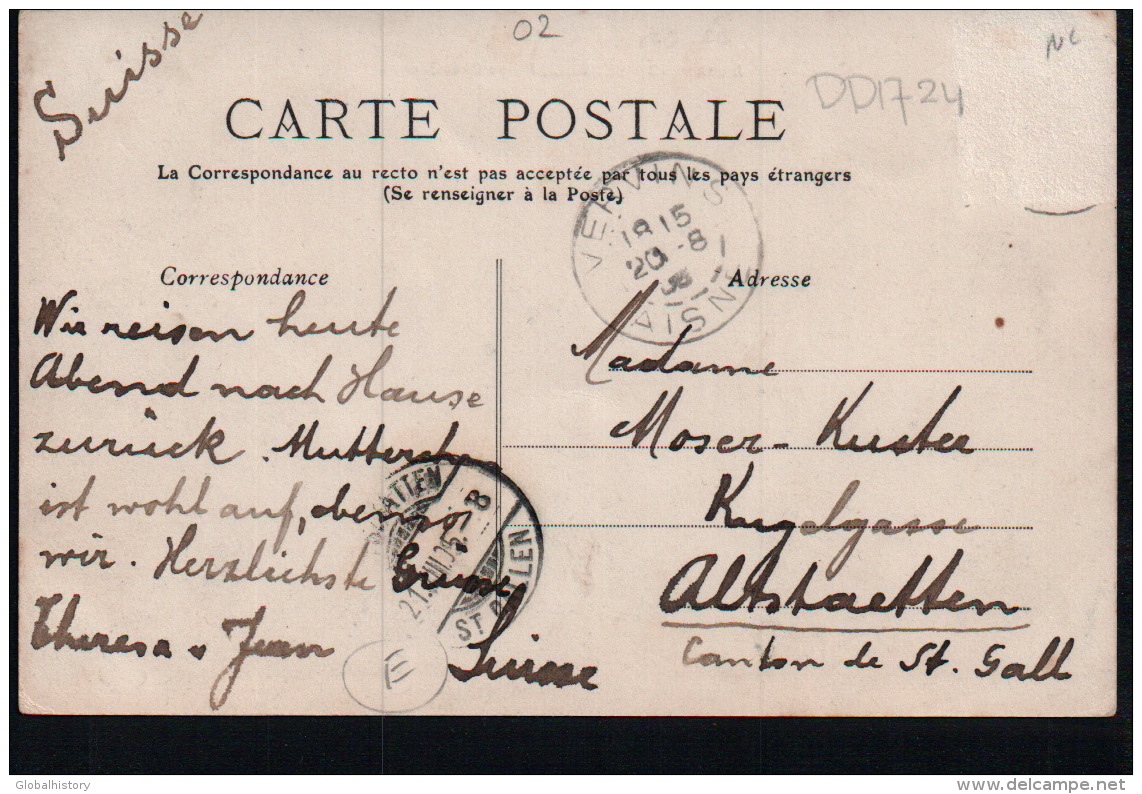 Suisse
02
NC
DD1724
CARTE POSTALE
La Correspondance au recto n'est pas acceptée par tous les pays étrangers
(Se renseigner à la Poste)
VERVINS
18 15
20 -8
AISNE
Correspondance
Adresse
Wir reisen heute
Abend nach Hause
zurück. Mutterchen
ist wohl auf, ebenso
wir. Herzlichste Grüsse
Theresa u Jean
Madame
Moser-Kuster
Kugelgasse
Altstaetten
Canton de St. Gall
Suisse
21.VIII.05
8
ST. GALLEN
E
Globalhistory
www.delcampe.net